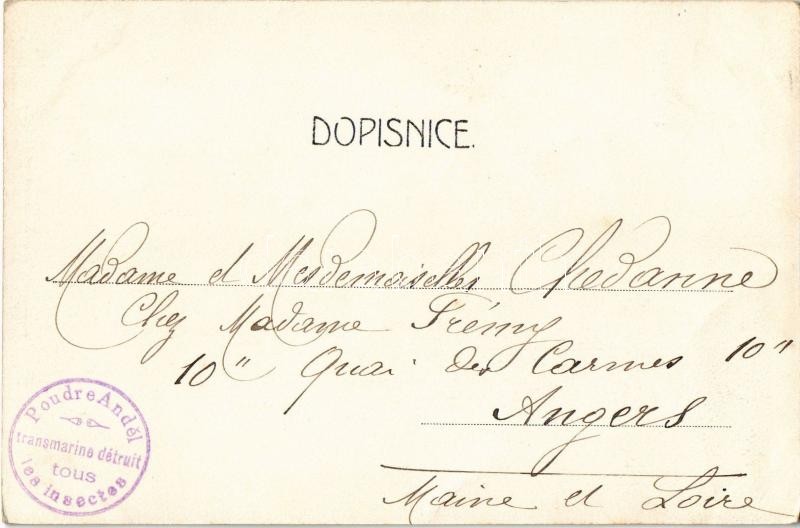 DOPISNICE.
Madame et Mesdemoiselles Chedanne
Chez Madame Frémy
10" Quai des Carmes 10"
Angers
Maine et Loire
Poudre Anděl
transmarine détruit
tous
les insectes